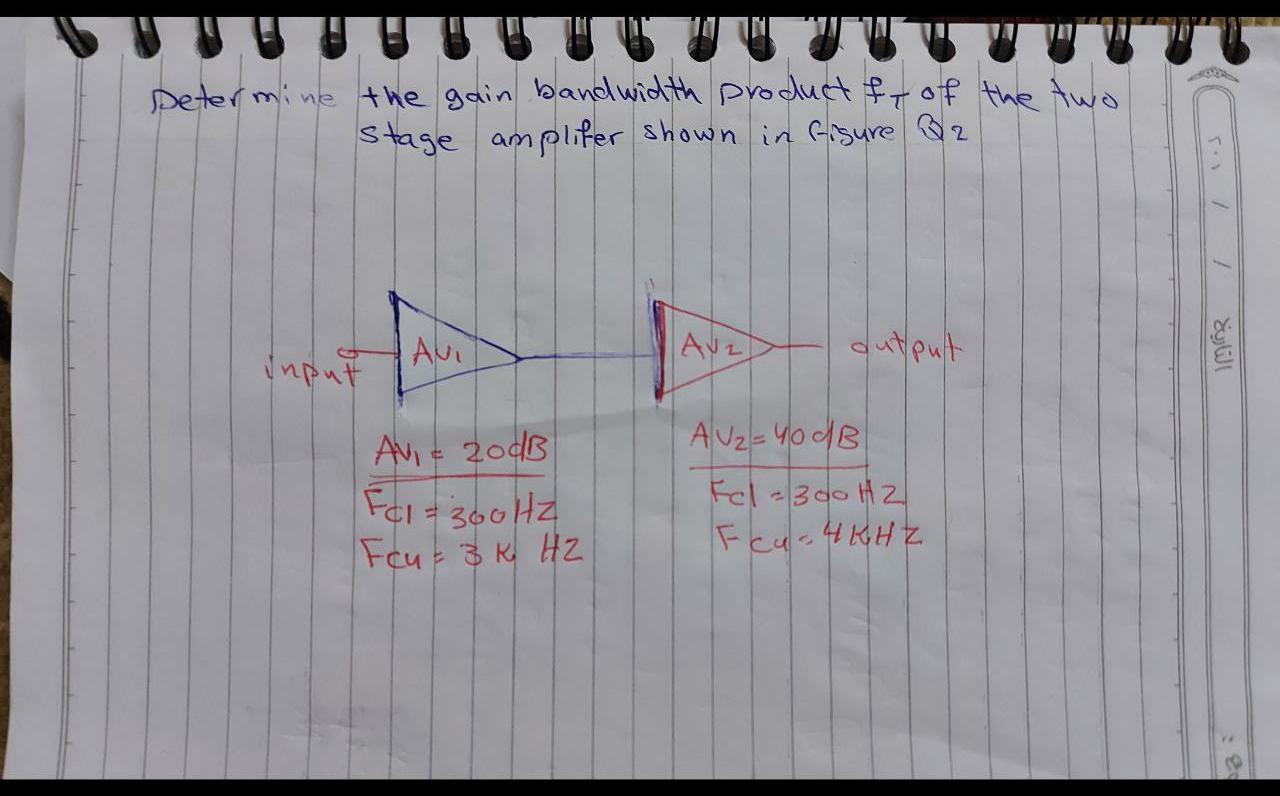 Determine the gain bandwidth product f_T of the two
stage amplifer shown in figure Q2
input
AV1
AV2
output
AV1 = 20dB
Fcl = 300HZ
Fcu = 3K HZ
AV2 = 40dB
Fcl = 300HZ
Fcu = 4KHZ
التاريخ / /